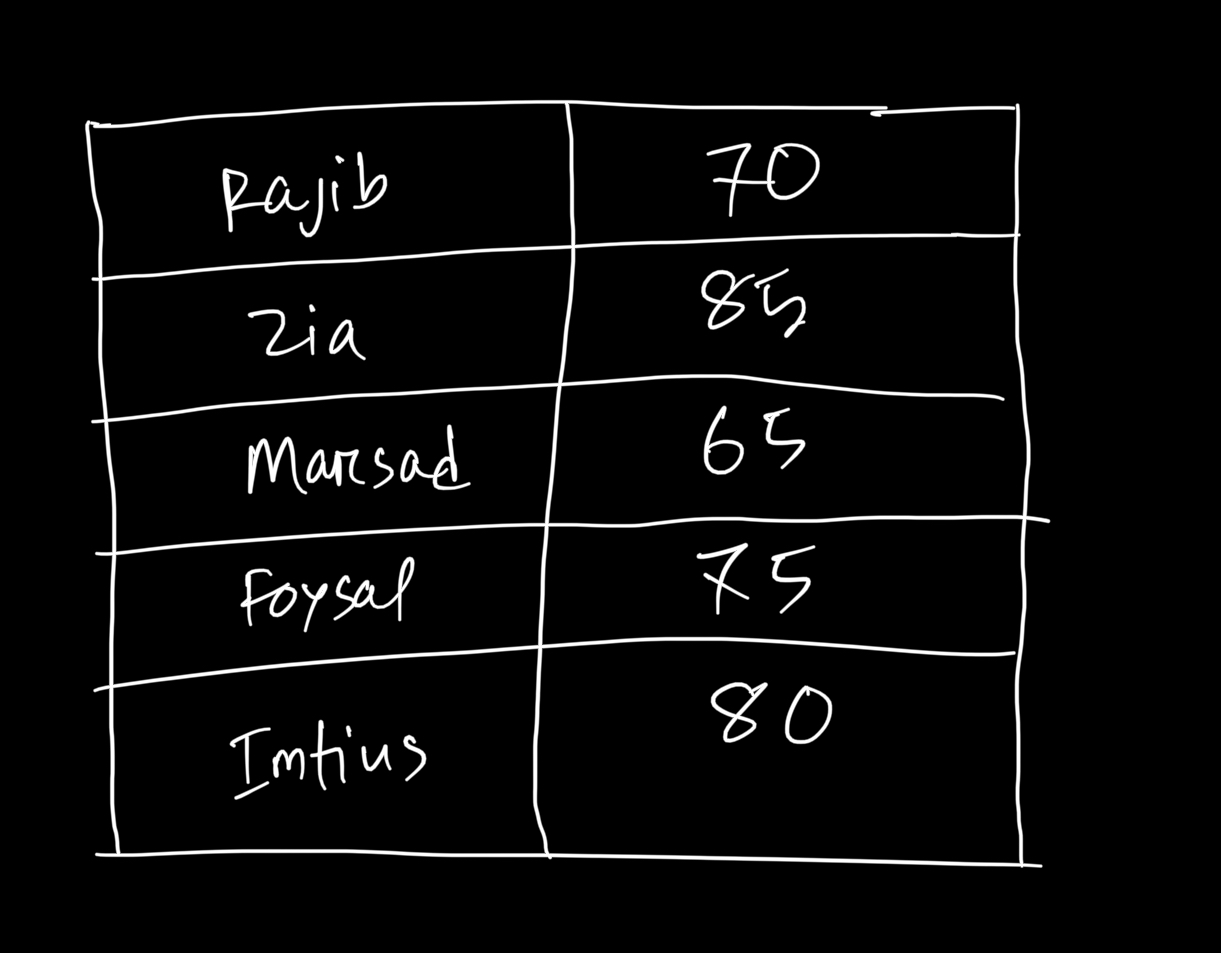 Rajib 70
Zia 85
Marsad 65
Foysal 75
Imtius 80